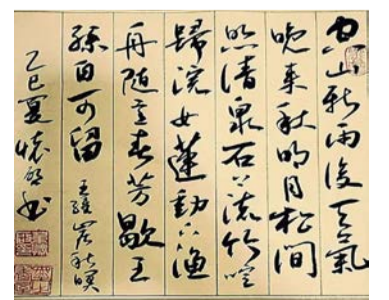 空山新雨後天氣
晚來秋明月松間
照清泉石上流竹喧
歸浣女蓮動下漁
舟隨意春芳歇王
孫自可留 王維山居秋暝
乙巳夏懷書